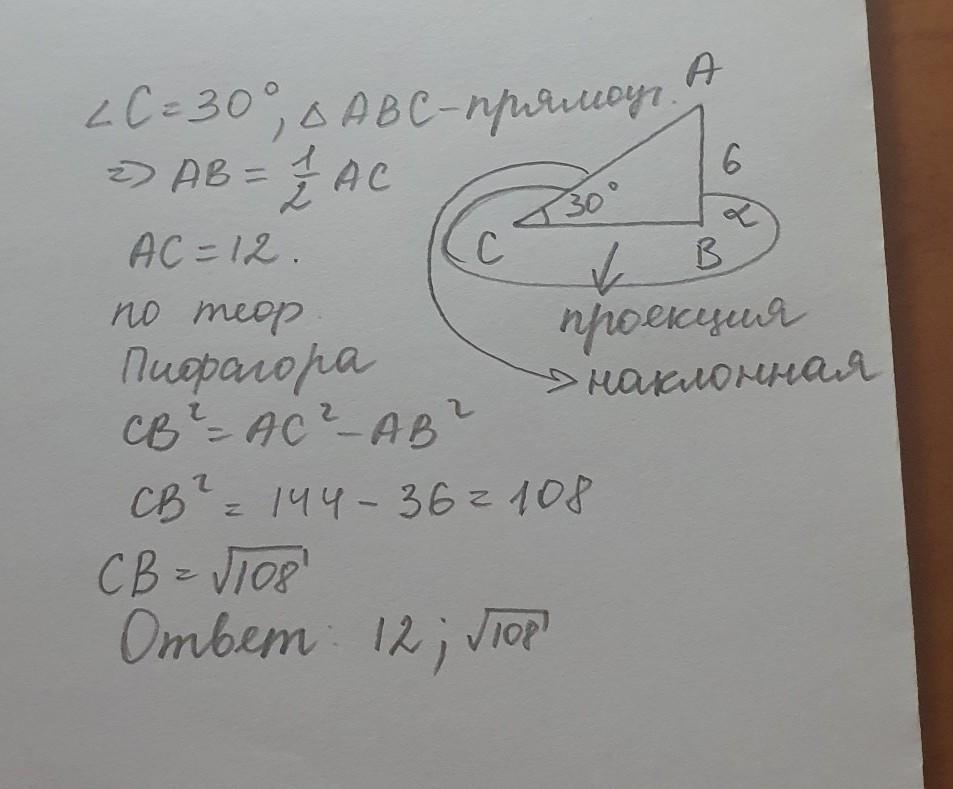 ∠C=30°, △ABC-прямоуг.
=> AB = 1/2 AC
AC=12.
по теор.
Пифагора
CB² = AC² - AB²
CB² = 144 - 36 = 108
CB = √108
Ответ: 12; √108
A
6
30°
α
C
B
проекция
наклонная